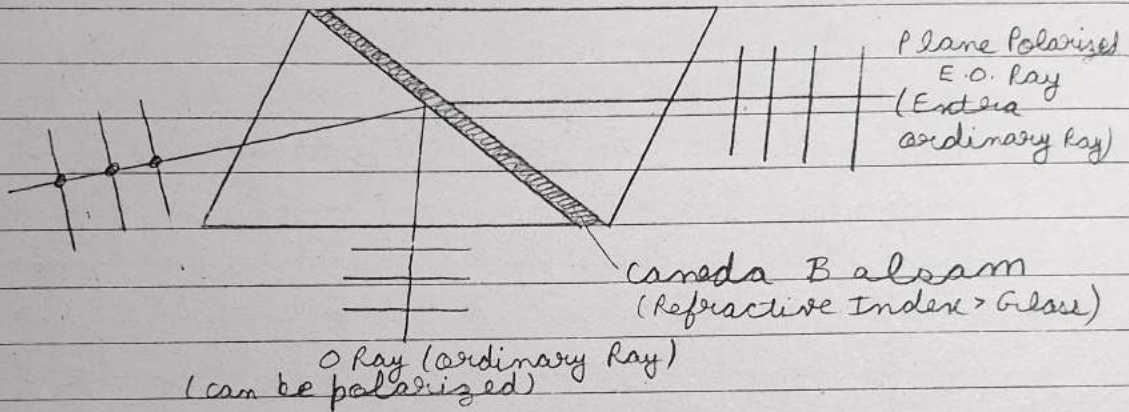 Plane Polarised
E.O. Ray
(Extera
ordinary Ray)
Caneda Balsam
(Refractive Index > Glass)
O Ray (ordinary Ray)
(can be polarized)